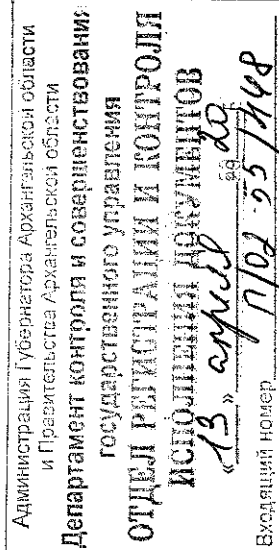 Администрация Губернатора Архангельской области
и Правительства Архангельской области
Департамент контроля и совершенствования
государственного управления
ОТДЕЛ РЕГИСТРАЦИИ И КОНТРОЛЯ
ИСПОЛНЕНИЯ ДОКУМЕНТОВ
«13» апреля 20
Входящий номер